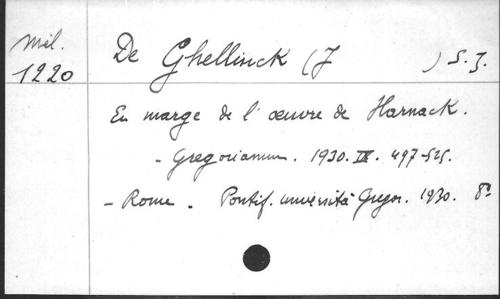 Mél.
1220
De Ghellinck (J ) S.J.
En marge de l'œuvre de Harnack.
- Gregorianum. 1930. IX. 497-525.
- Rome. Pontif. università Gregor. 1930. 8°